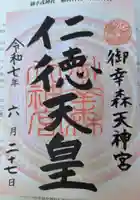 御幸森天神宮
仁徳天皇
令和七年
六月
二十七日